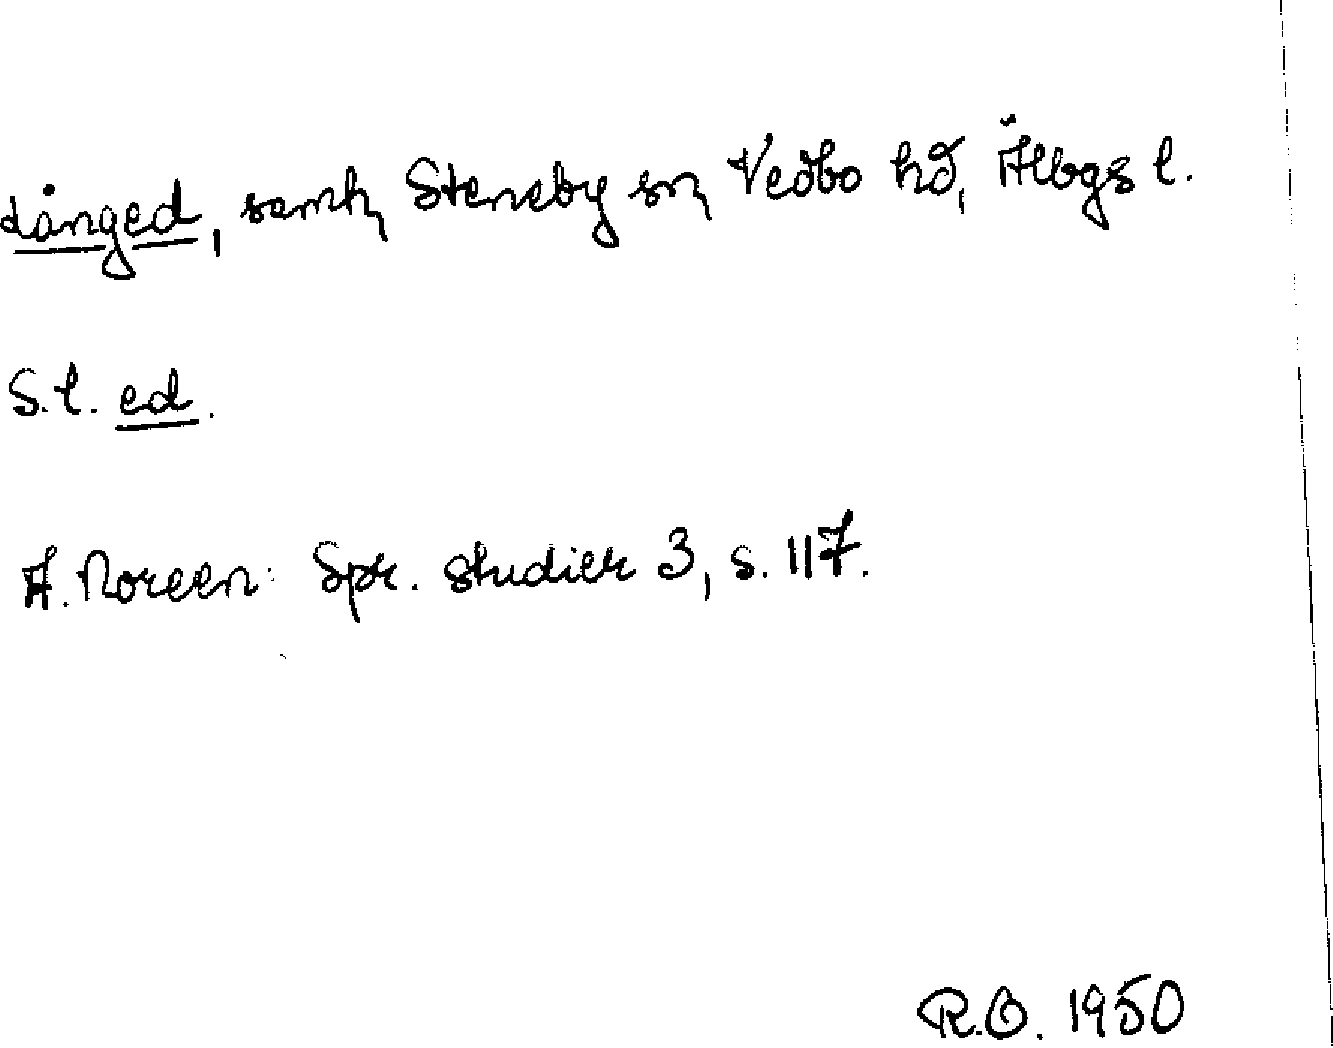 Långed, samh, Steneby sn, Vedbo hd, Älvbgs l.
S.l. ed.
A. Noreen: Spr. studier 3, s. 117.
R.O. 1950